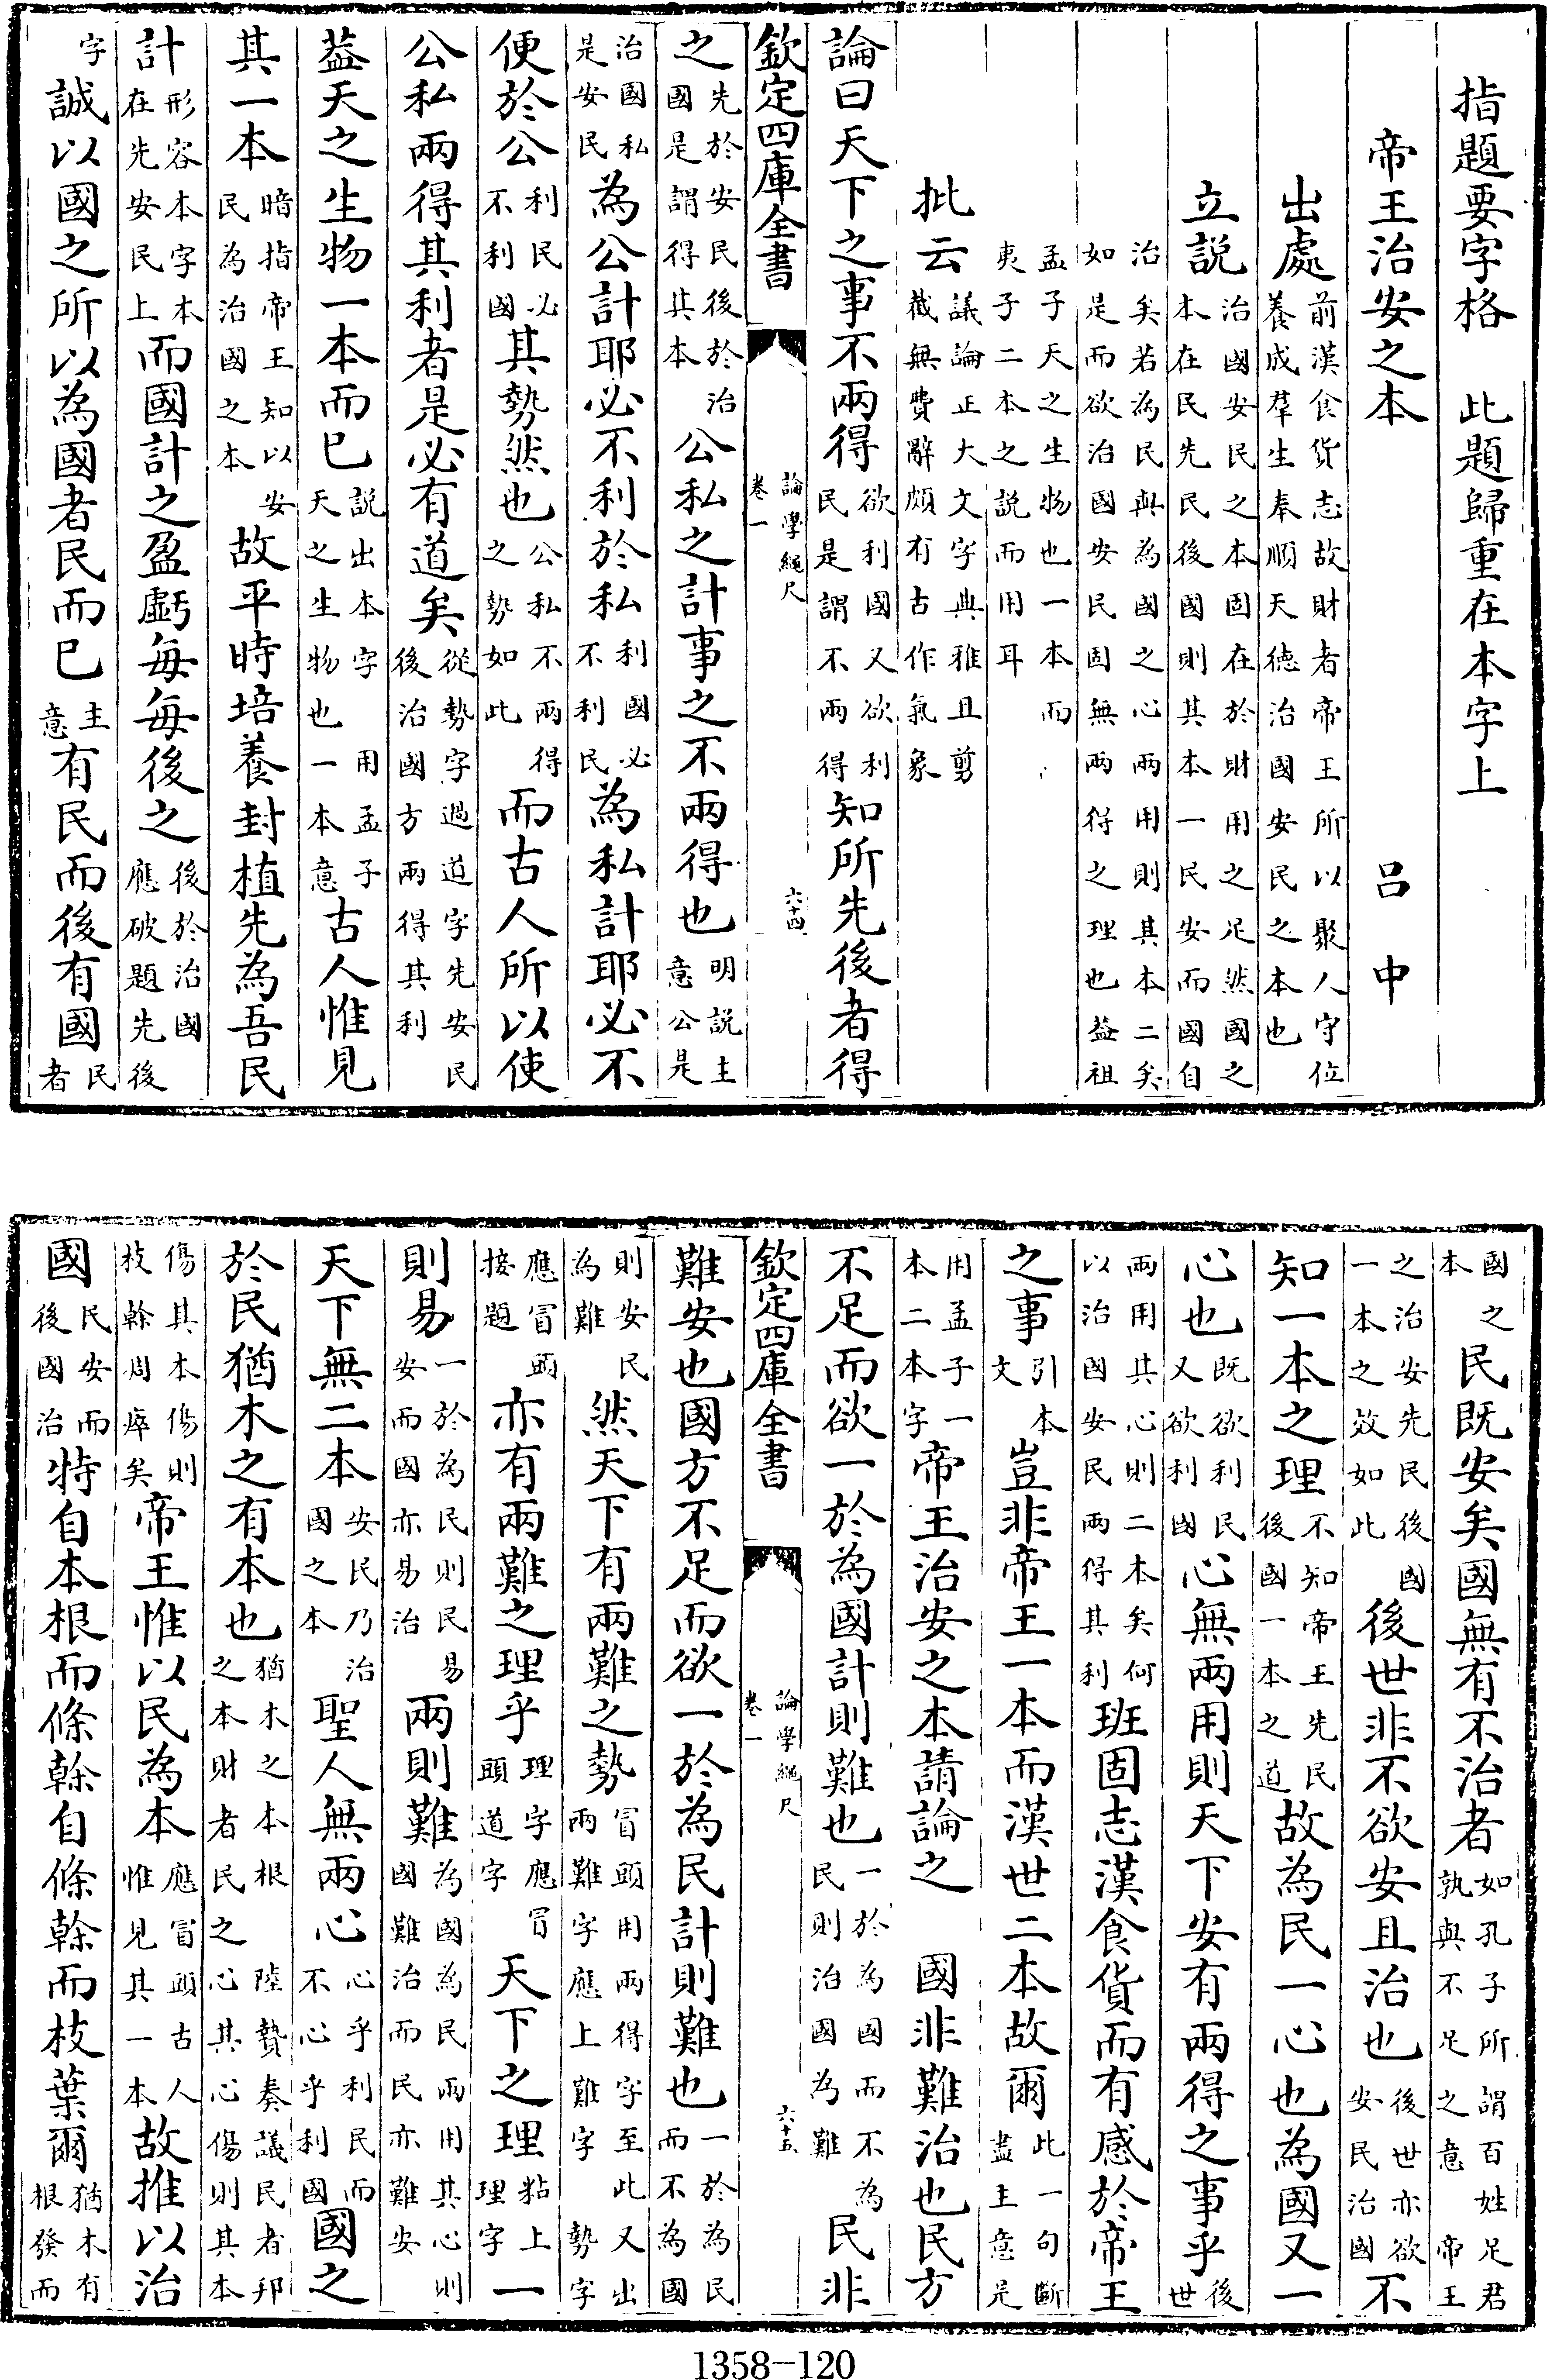 指題要字格　此題歸重在本字上
帝王治安之本　呂中
出處前漢食貨志故財者帝王所以聚人守位養成羣生奉順天德治國安民之本也
立説治國安民之本固在於財用之足然國之本在民先民後國則其本一民安而國自
治矣若為民與為國之心兩用則其本二矣如是而欲治國安民固無兩得之理也葢祖
孟子天之生物也一本而夷子二本之説而用耳
批云議論正大文字典雅且剪截無費辭頗有古作氣象
論曰天下之事不兩得欲利國又欲利民是謂不兩得知所先後者得
欽定四庫全書　論學繩尺　卷一　六十四
之先於安民後於治國是謂得其本公私之計事之不兩得也明説主意公是
治國私是安民為公計耶必不利於私利國必不利民為私計耶必不
便於公利民必不利國其勢然也公私不兩得之勢如此而古人所以使
公私兩得其利者是必有道矣從勢字過道字先安民後治國方兩得其利
葢天之生物一本而已説出本字用孟子天之生物也一本意古人惟見
其一本暗指帝王知以安民為治國之本故平時培養封植先為吾民
計形容本字本在先安民上而國計之盈虧每每後之後於治國應破題先後
字誠以國之所以為國者民而已主意有民而後有國民者
國之本民既安矣國無有不治者如孔子所謂百姓足君孰與不足之意帝王
之治安先民後國一本之效如此後世非不欲安且治也後世亦欲安民治國不
知一本之理不知帝王先民後國一本之道故為民一心也為國又一
心也既欲利民又欲利國心無兩用則天下安有兩得之事乎後世
兩用其心則二本矣何以治國安民兩得其利班固志漢食貨而有感於帝王
之事引本文豈非帝王一本而漢世二本故爾此一句斷盡主意是
用孟子一本二本字帝王治安之本請論之　國非難治也民方
不足而欲一於為國計則難也一於為國而不為民則治國為難民非
欽定四庫全書　論學繩尺　卷一　六十五
難安也國方不足而欲一於為民計則難也一於為民而不為國
則安民為難然天下有兩難之勢冒頭用兩得字至此又出兩難字應上難字勢字
應冒頭接題亦有兩難之理乎理字應冒頭道字天下之理粘上理字一
則易一於為民則民易安而國亦易治兩則難為國為民兩用其心則國難治而民亦難安
天下無二本安民乃治國之本聖人無兩心心乎利民而不心乎利國國之
於民猶木之有本也猶木之本根陸贄奏議民者邦之本財者民之心其心傷則其本
傷其本傷則枝幹周瘁矣帝王惟以民為本應冒頭古人惟見其一本故推以治
國民安而後國治特自本根而條幹自條幹而枝葉爾猶木有根發而
1358-120